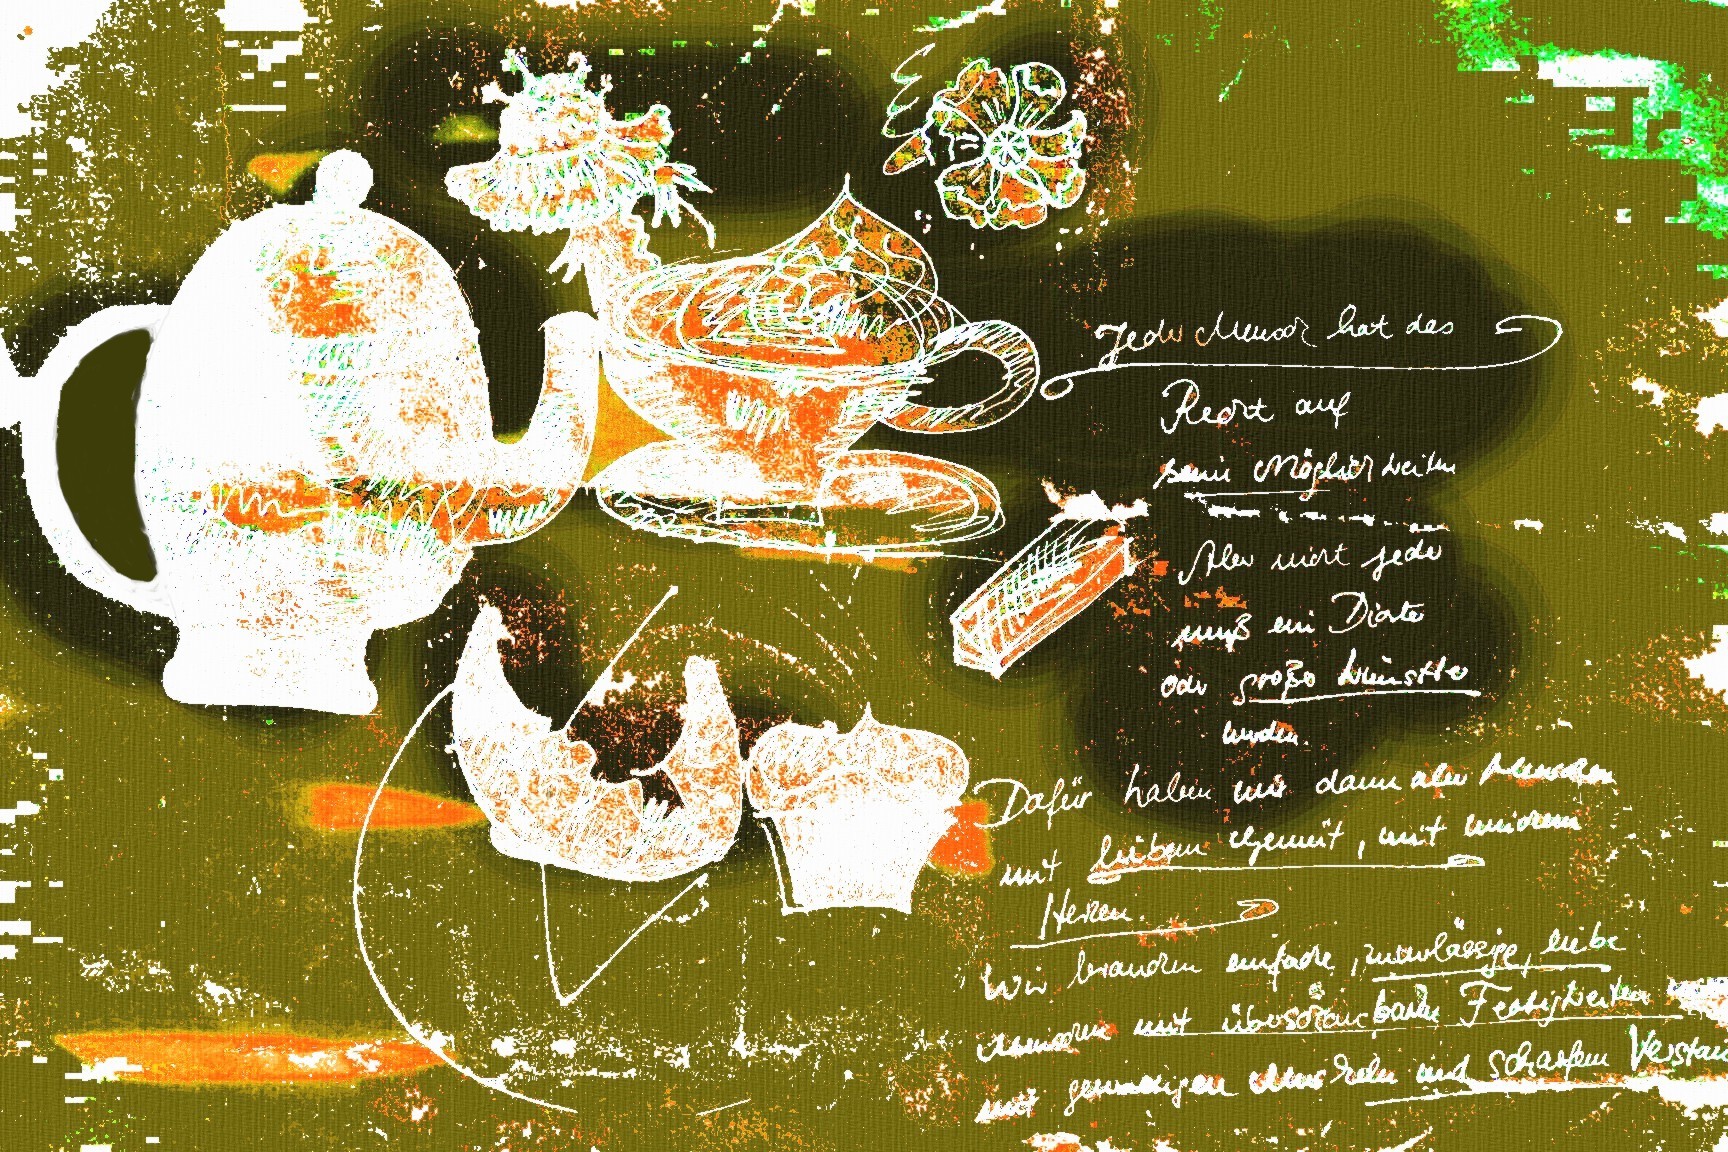 Jeder Mensch hat das
Recht auf
seine Möglichkeiten
Aber nicht jeder
muß ein Dichter
oder großer Künstler
werden.
Dafür haben wir dann aber Menschen
mit liebem Gemüt, mit
Herzen.
Wir brauchen einfache, zuverlässige, liebe
Menschen mit überschaubaren Festigkeiten
mit gewaltigen Muskeln und scharfem